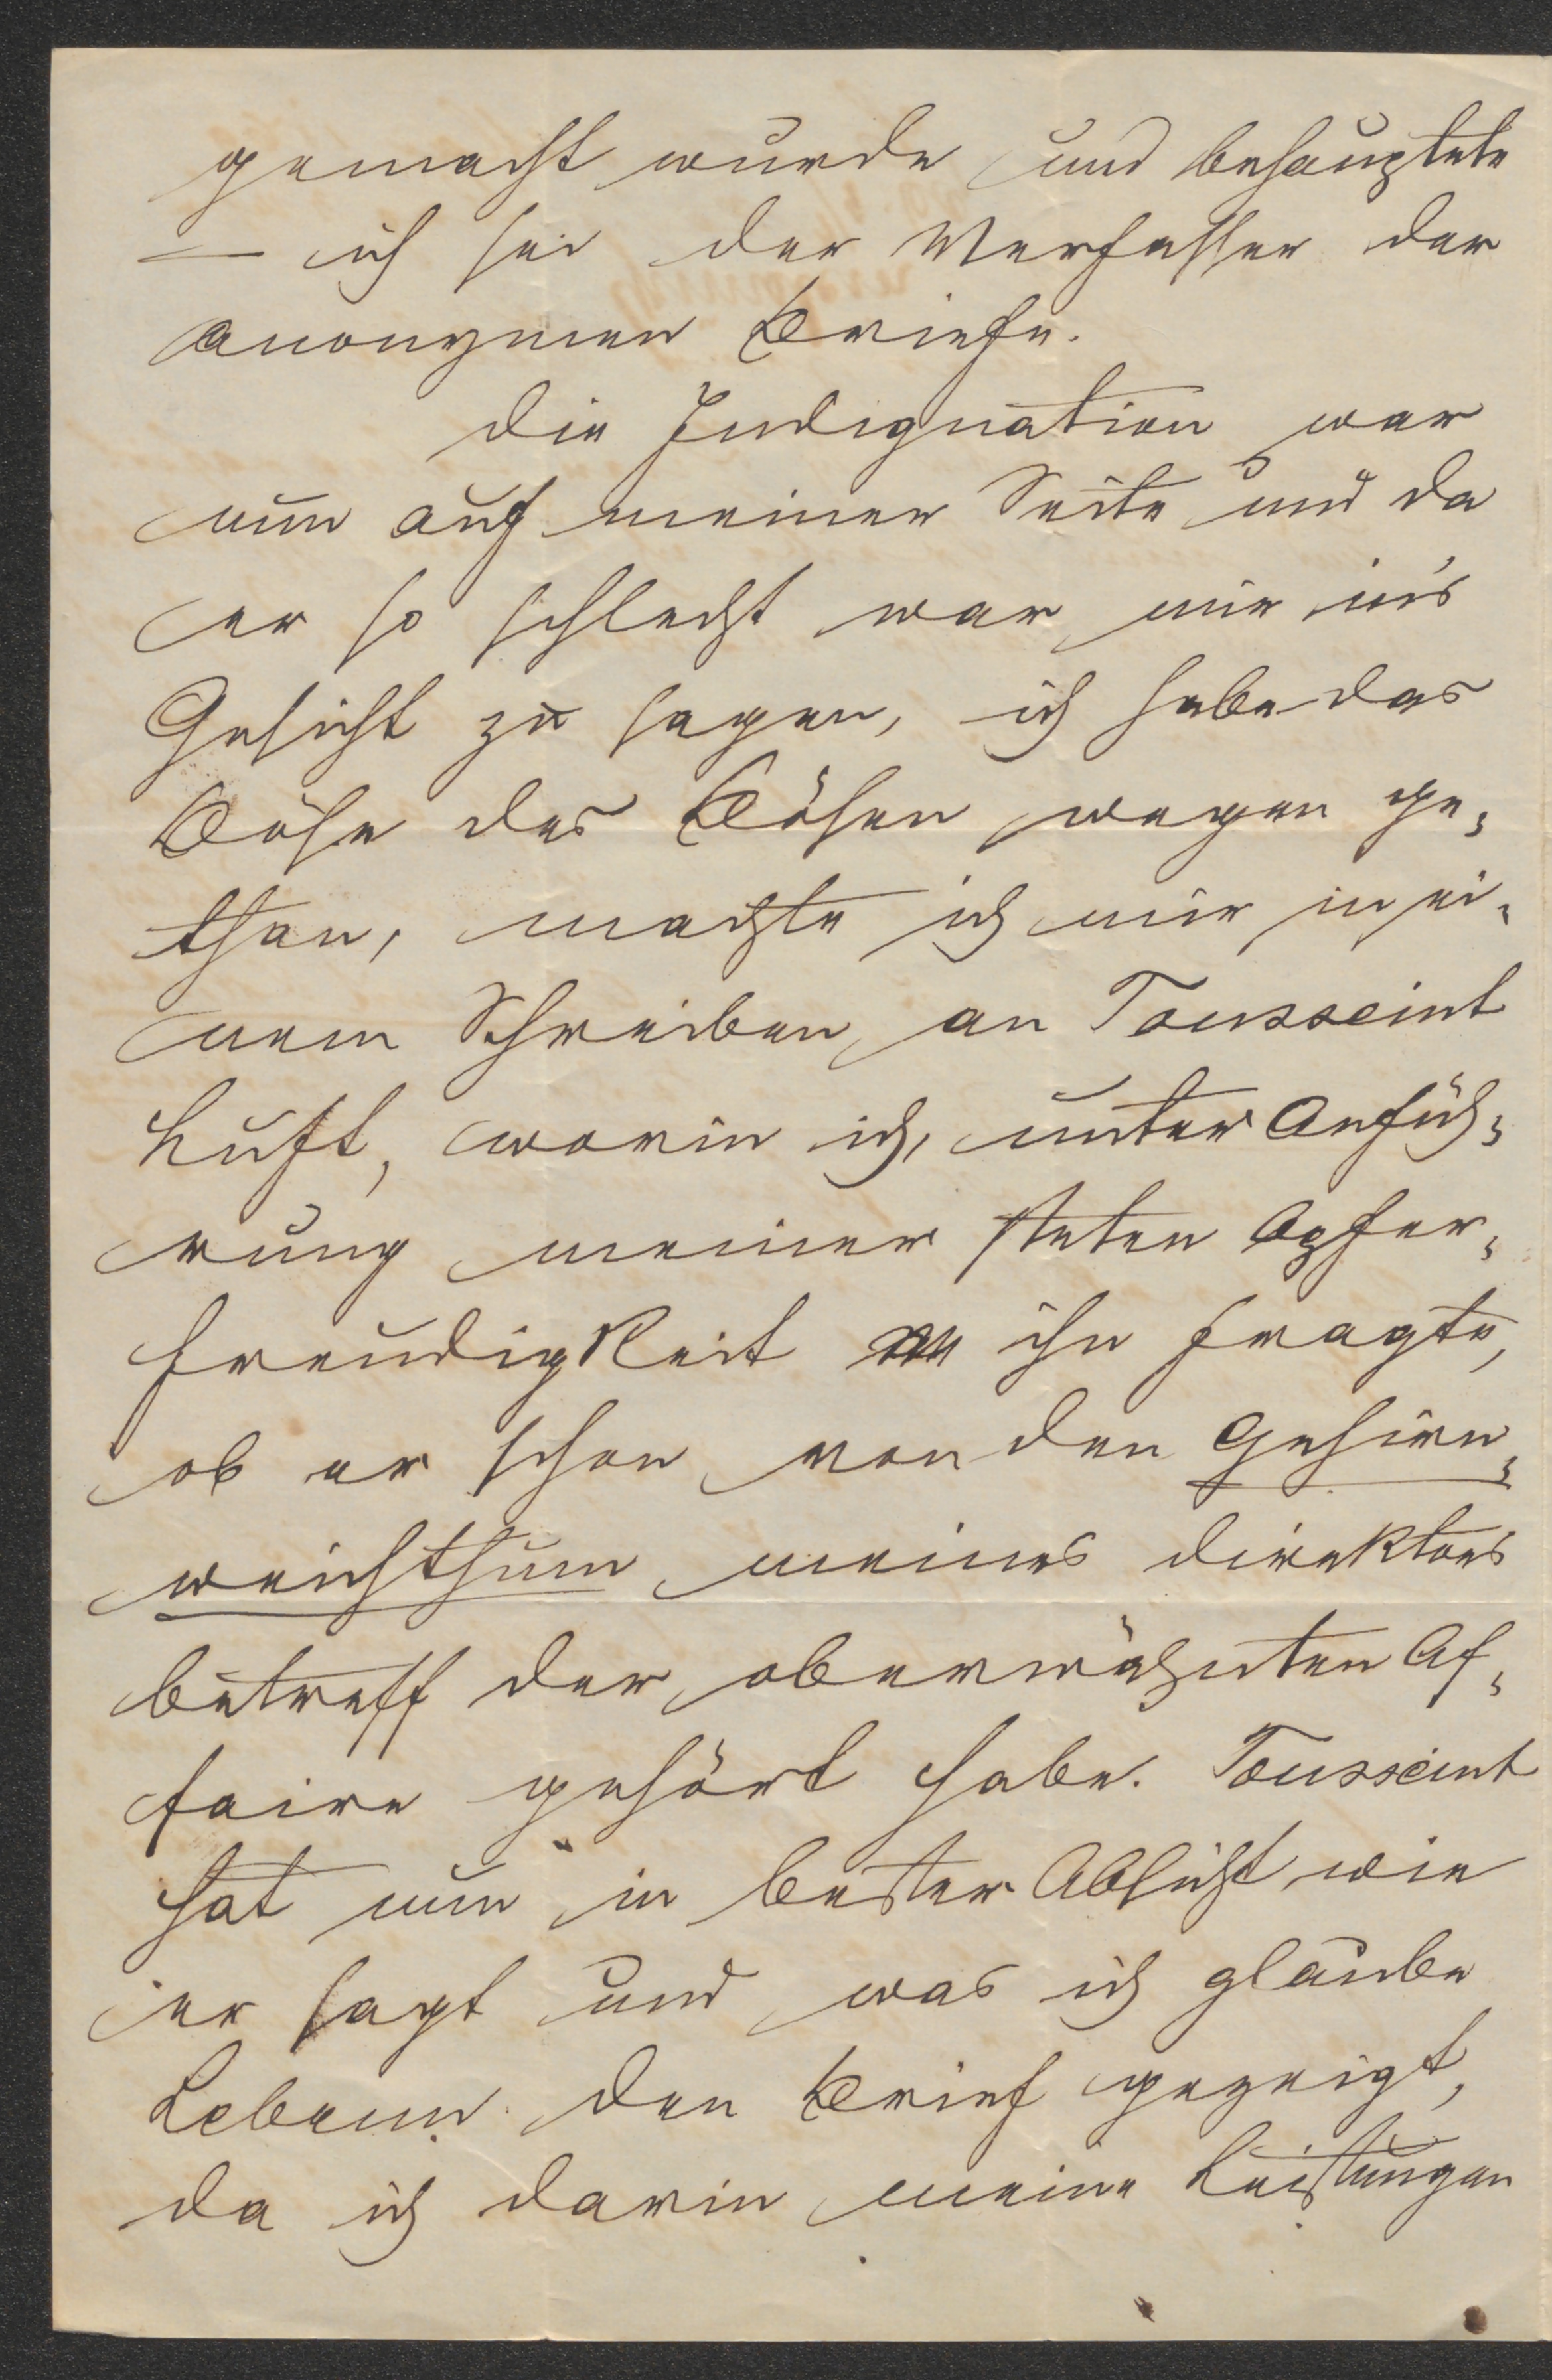 gemacht wurde und behauptete
— ich sei der Verfasser der
anonymen Briefe.
Die Indignation war
nun auf meiner Seite und da
er so schlecht war mir in's
Gesicht zu sagen, ich habe das
Böse des Bösen wegen ge-
than, machte ich mir in ei-
nem Schreiben an Tousseint
Luft, worin ich, unter Anfüh-
rung meiner steten Opfer-
freudigkeit ihn fragte,
ob er schon von dem Gehirn-
weichthum meines Direktors
betreff der oberwähnten Af-
faire gehört habe. Tousseint
hat nun in bester Absicht wie
er sagt und was ich glaube
den Brief gezeigt,
da ich darin meine Leistungen